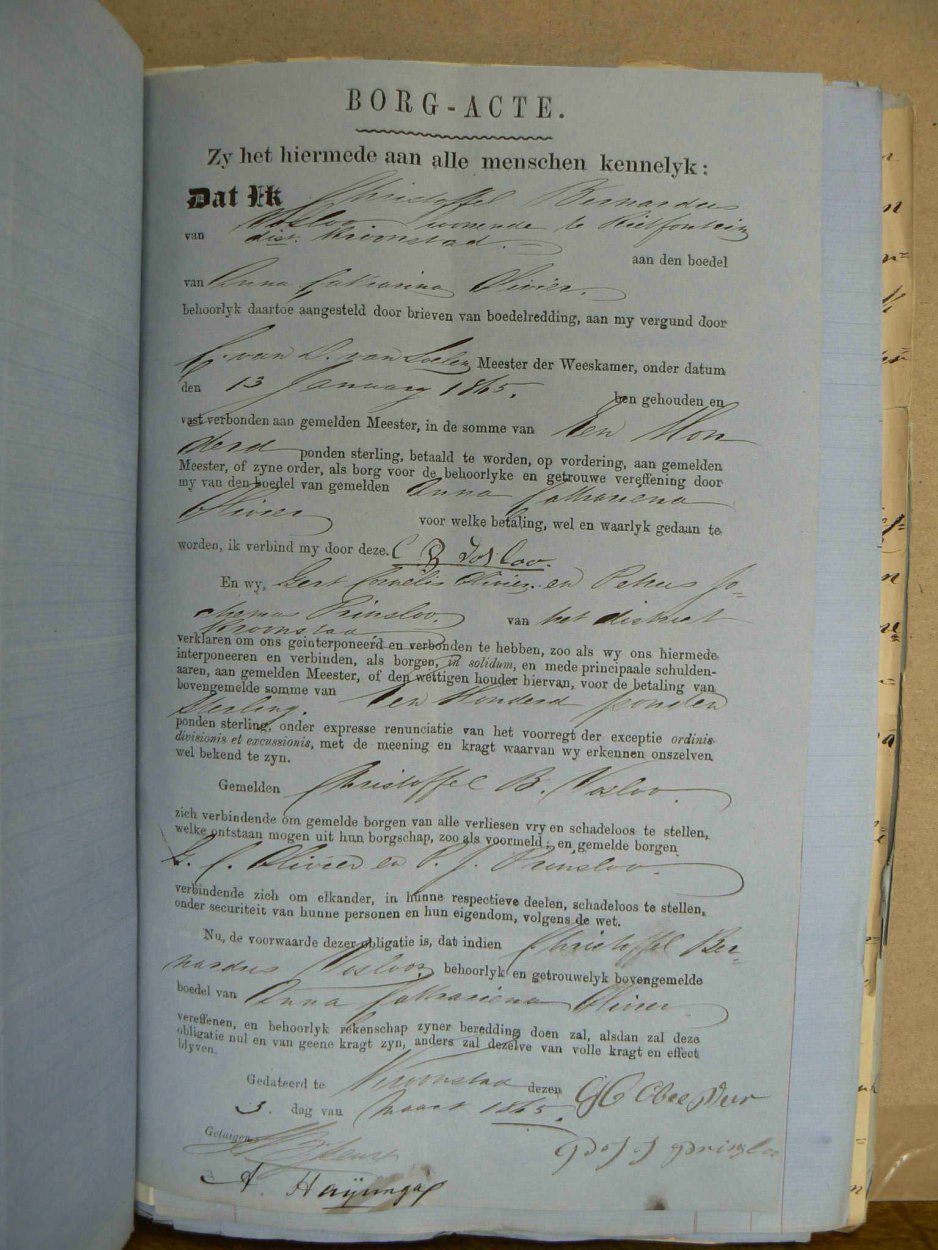 BORG-ACTE.
Zy het hiermede aan alle menschen kennelyk:
Dat Ik Christoffel Bernardus
Vosloo woonende te Rietfontein
van dist. Kroonstad.
aan den boedel
van Anna Catharina Olivier.
behoorlyk daartoe aangesteld door brieven van boedelredding, aan my vergund door
van Meester der Weeskamer, onder datum
den 13 January 1865. ben gehouden en
vast verbonden aan gemelden Meester, in de somme van Een Hon
derd ponden sterling, betaald te worden, op vordering, aan gemelden
Meester, of zyne order, als borg voor de behoorlyke en getrouwe vereffening door
my van den boedel van gemelden Anna Cathariena
Olivier voor welke betaling, wel en waarlyk gedaan te
worden, ik verbind my door deze. C B Vosloo.
En wy, Gert Cornelis Olivier en Petrus Jo=
chemus Prinsloo. van het district
Kroonstad
verklaren om ons geinterponeerd en verbonden te hebben, zoo als wy ons hiermede
interponeeren en verbinden, als borgen, in solidum, en mede principaale schulden-
aaren, aan gemelden Meester, of den wettigen houder hiervan, voor de betaling van
bovengemelde somme van Een Honderd ponden
Sterling.
ponden sterling, onder expresse renunciatie van het voorregt der exceptie ordinis
divisionis et excussionis, met de meening en kragt waarvan wy erkennen onszelven
wel bekend te zyn.
Gemelden Christoffel B. Vosloo.
zich verbindende om gemelde borgen van alle verliesen vry en schadeloos te stellen,
welke ontstaan mogen uit hun borgschap, zoo als voormeld; en gemelde borgen
G. C. Olivier en P. J. Prinsloo.
verbindende zich om elkander, in hunne respectieve deelen, schadeloos te stellen,
onder securiteit van hunne personen en hun eigendom, volgens de wet.
Nu, de voorwaarde dezer obligatie is, dat indien Christoffel Ber=
nardus Vosloo behoorlyk en getrouwelyk bovengemelde
boedel van Anna Cathariena Olivier.
vereffenen, en behoorlyk rekenschap zyner beredding doen zal, alsdan zal deze
obligatie nul en van geene kragt zyn, anders zal dezelve van volle kragt en effect
blyven.
Gedateerd te Kroonstad dezen
3. dag van Maart 1865.
Getuigen
A.